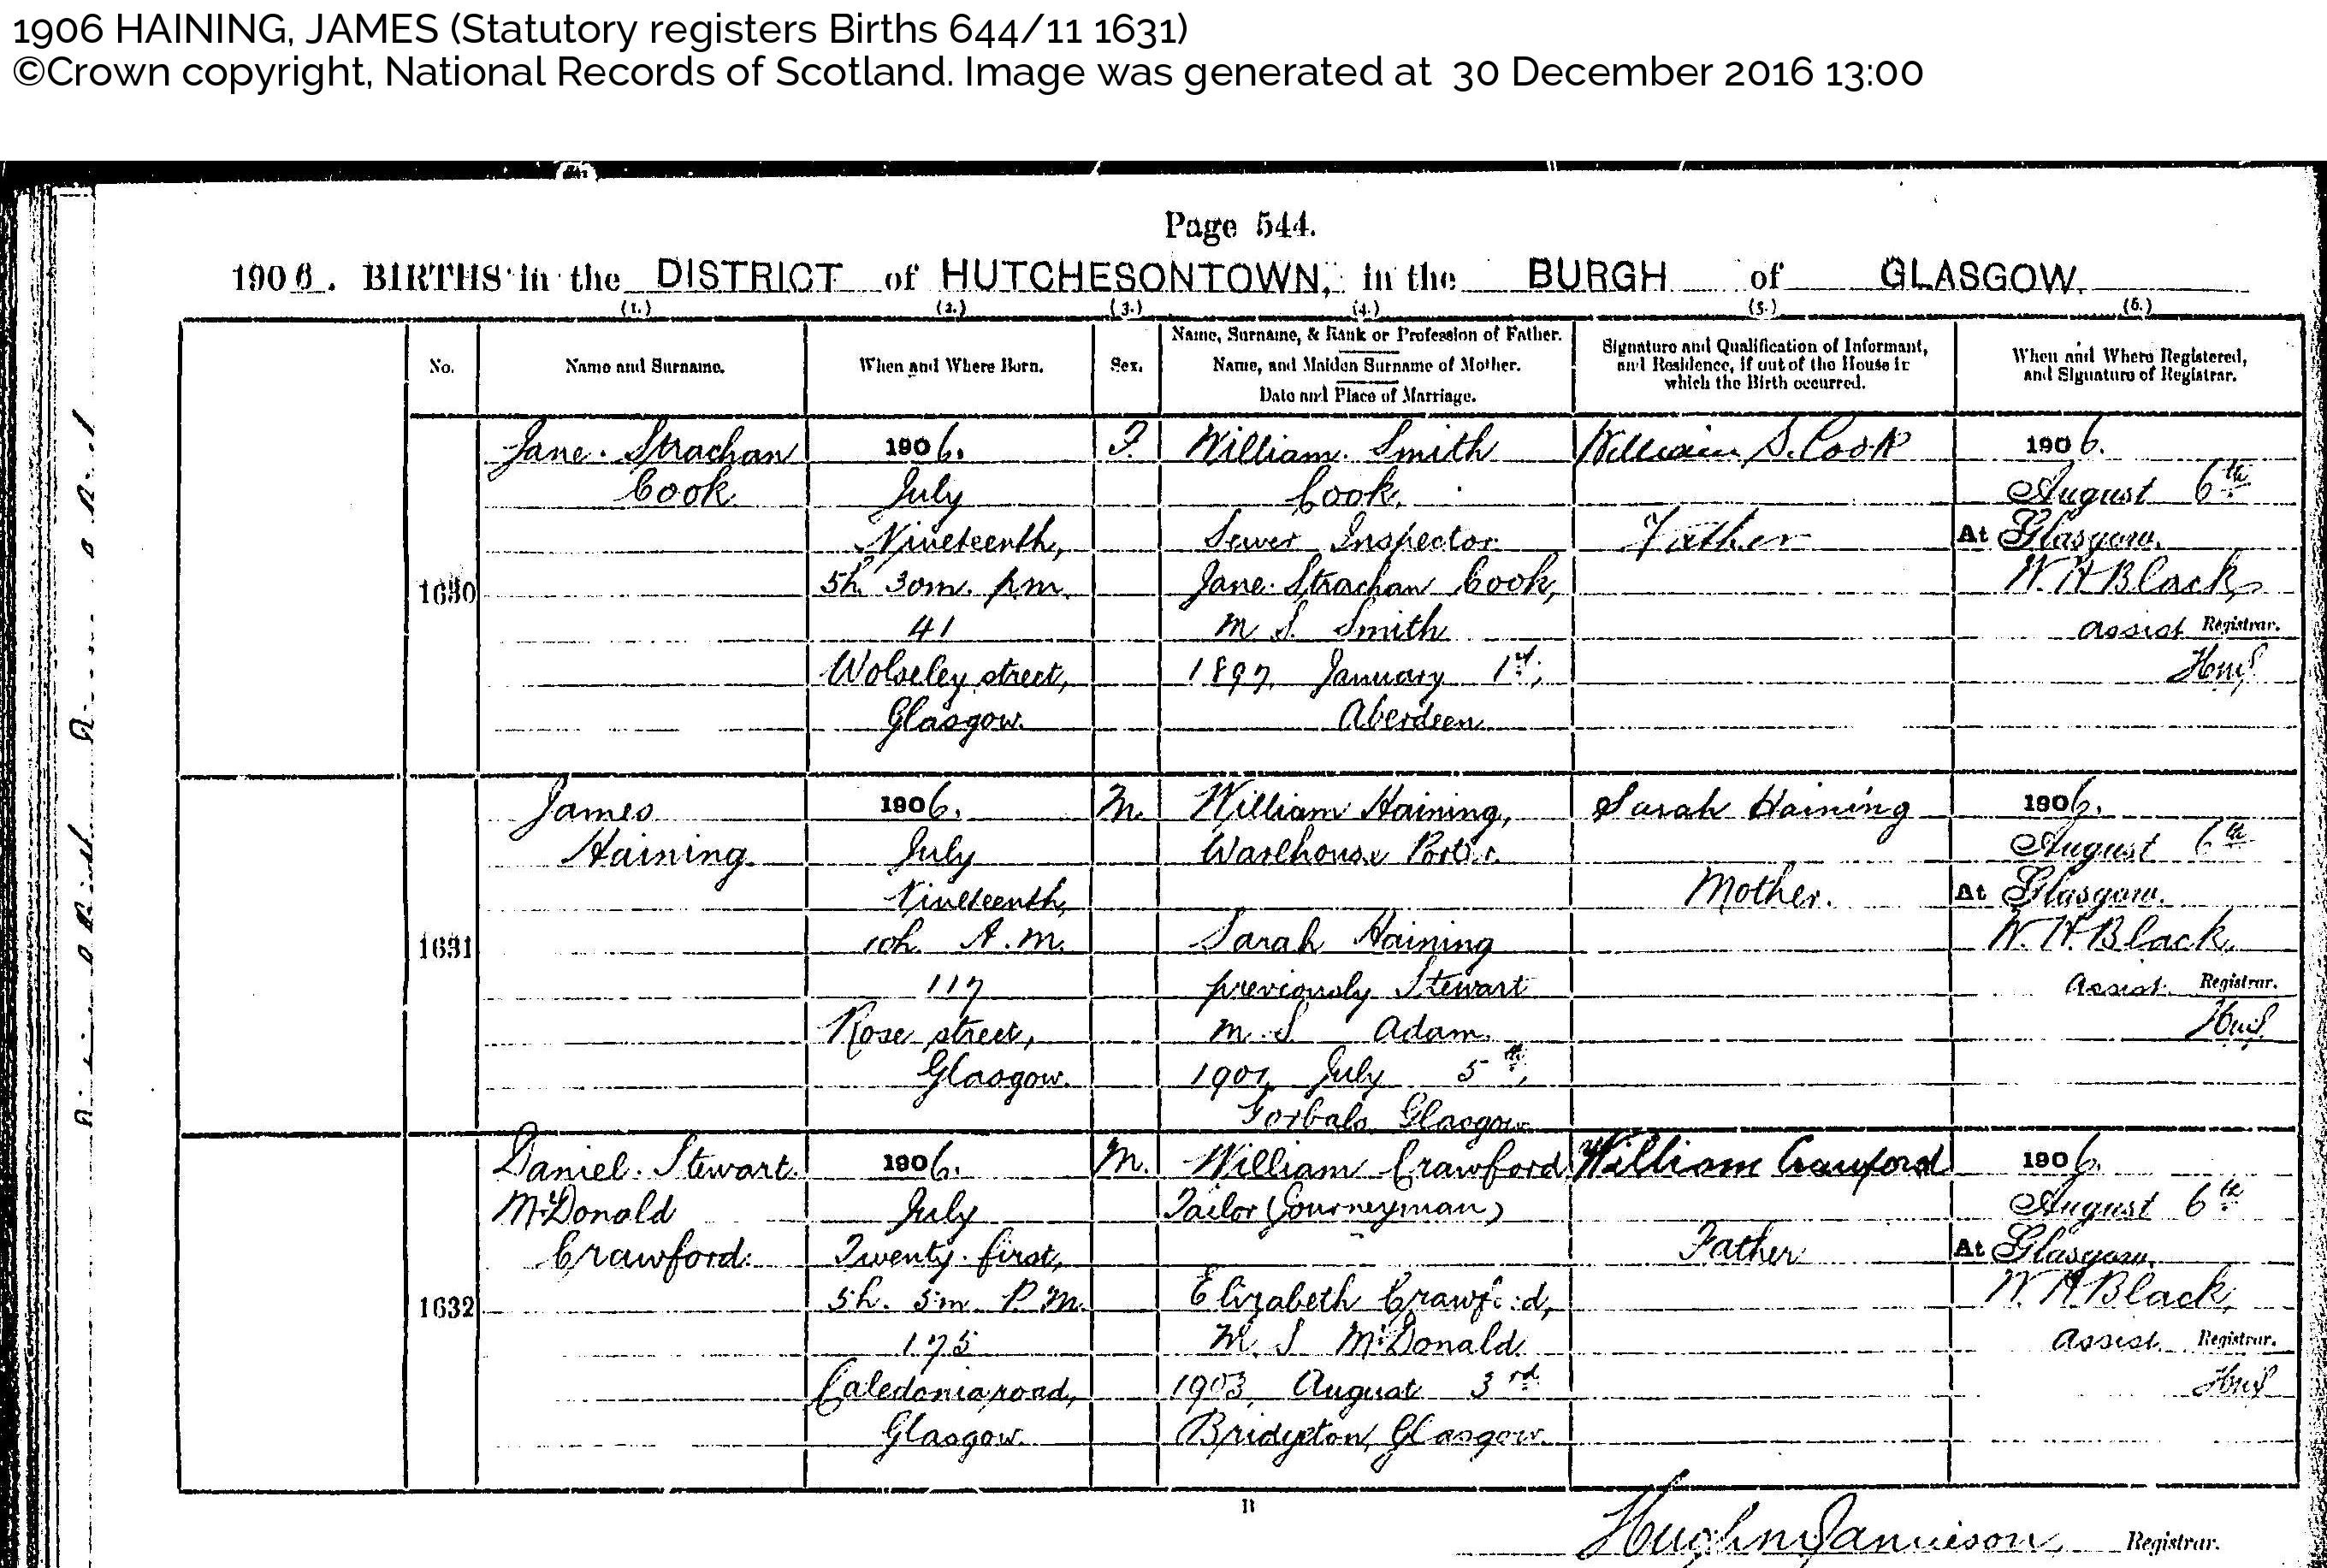 1906 HAINING, JAMES (Statutory registers Births 644/11 1631)
©Crown copyright, National Records of Scotland. Image was generated at 30 December 2016 13:00
Page 544.
1906. BIRTHS in the DISTRICT of HUTCHESONTOWN, in the BURGH of GLASGOW.
(1.) (2.) (3.) (4.) (5.) (6.)
No.
Name and Surname.
When and Where Born.
Sex.
Name, Surname, & Rank or Profession of Father.
Name, and Maiden Surname of Mother.
Date and Place of Marriage.
Signature and Qualification of Informant,
and Residence, if out of the House in
which the Birth occurred.
When and Where Registered,
and Signature of Registrar.
1630
Jane Strachan
Cook
1906.
July
Nineteenth,
5h. 30m. p.m.
41
Wolseley street,
Glasgow.
F.
William Smith
Cook,
Sewer Inspector
Jane Strachan Cook,
M.S. Smith
1897, January 1st,
Aberdeen
William S. Cook
Father
1906.
August 6th
At Glasgow.
W. H. Black,
Assist Registrar.
1631
James
Haining
1906.
July
Nineteenth,
10h. A.M.
117
Rose street,
Glasgow.
M.
William Haining,
Warehouse Porter.
Sarah Haining
previously Stewart
M.S. Adam
July 5th,
Gorbals Glasgow
Sarah Haining
Mother.
1906.
August 6th
At Glasgow.
W. H. Black,
Assist. Registrar.
1632
Daniel Stewart
McDonald
Crawford.
1906.
July
Twenty-first,
5h. 5m. P.M.
175
Caledonia road,
Glasgow.
M.
William Crawford
Tailor (Journeyman)
Elizabeth Crawford,
M.S. McDonald
1903, August 3rd
Bridgeton, Glasgow.
William Crawford
Father
1906.
August 6th
At Glasgow.
W. H. Black,
Assist. Registrar.
Jamieson, Registrar.